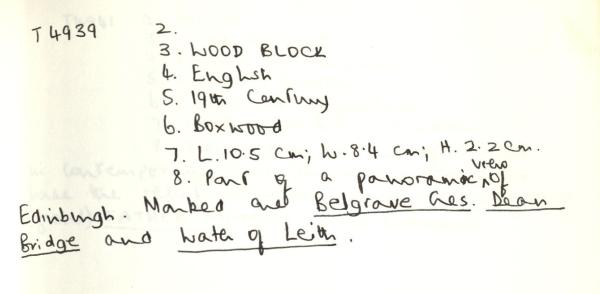 T4939 2.
3. WOOD BLOCK
4. English
5. 19th Century
6. Boxwood
7. L.10.5 cm; W.8.4 cm; H.2.2 cm.
8. Part of a panoramic view of
Edinburgh. Marked are Belgrave Cres. Dean
Bridge and Water of Leith.